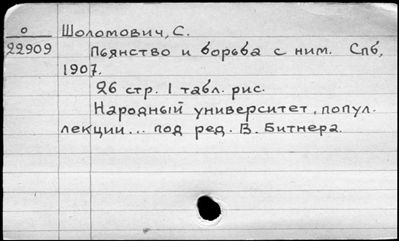 о Шоломович, С.
22909 Пьянство и борьба с ним. Спб,
1907.
26 стр. 1 табл. рис.
Народный университет, попул.
лекции... под ред. В. Битнера.